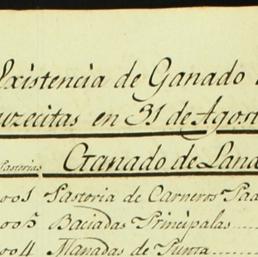 Existencia de Ganado
Cruzecitas en 31 de Agos
Pastorias Ganado de Lana
001 Pastoria de Carneros Pad
003 Baciadas Principales
004 Manadas de Punta